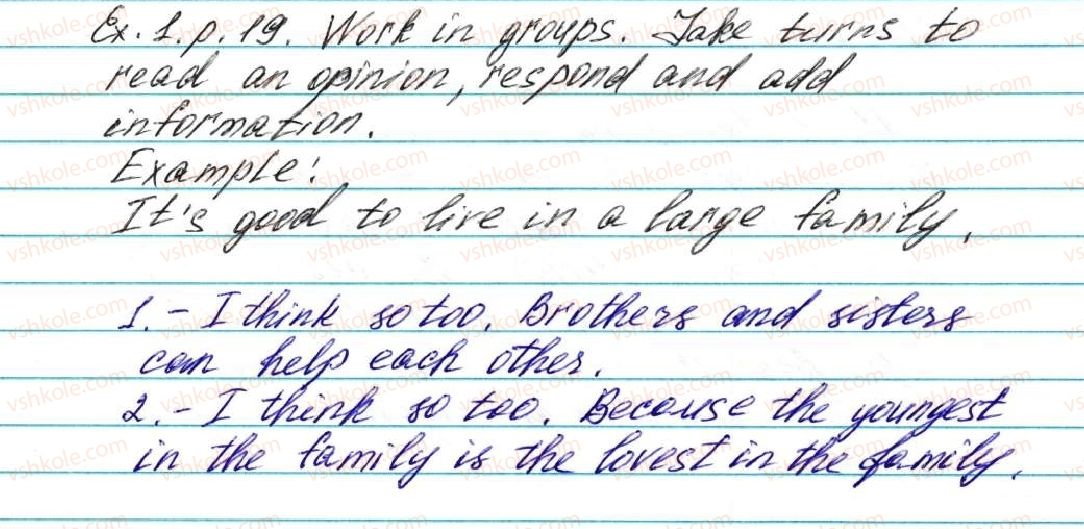 Ex. 1. p. 19. Work in groups. Take turns to
read an opinion, respond and add
information.
Example:
It's good to live in a large family.
1. - I think so too. Brothers and sisters
can help each other.
2. - I think so too. Because the youngest
in the family is the lovest in the family.